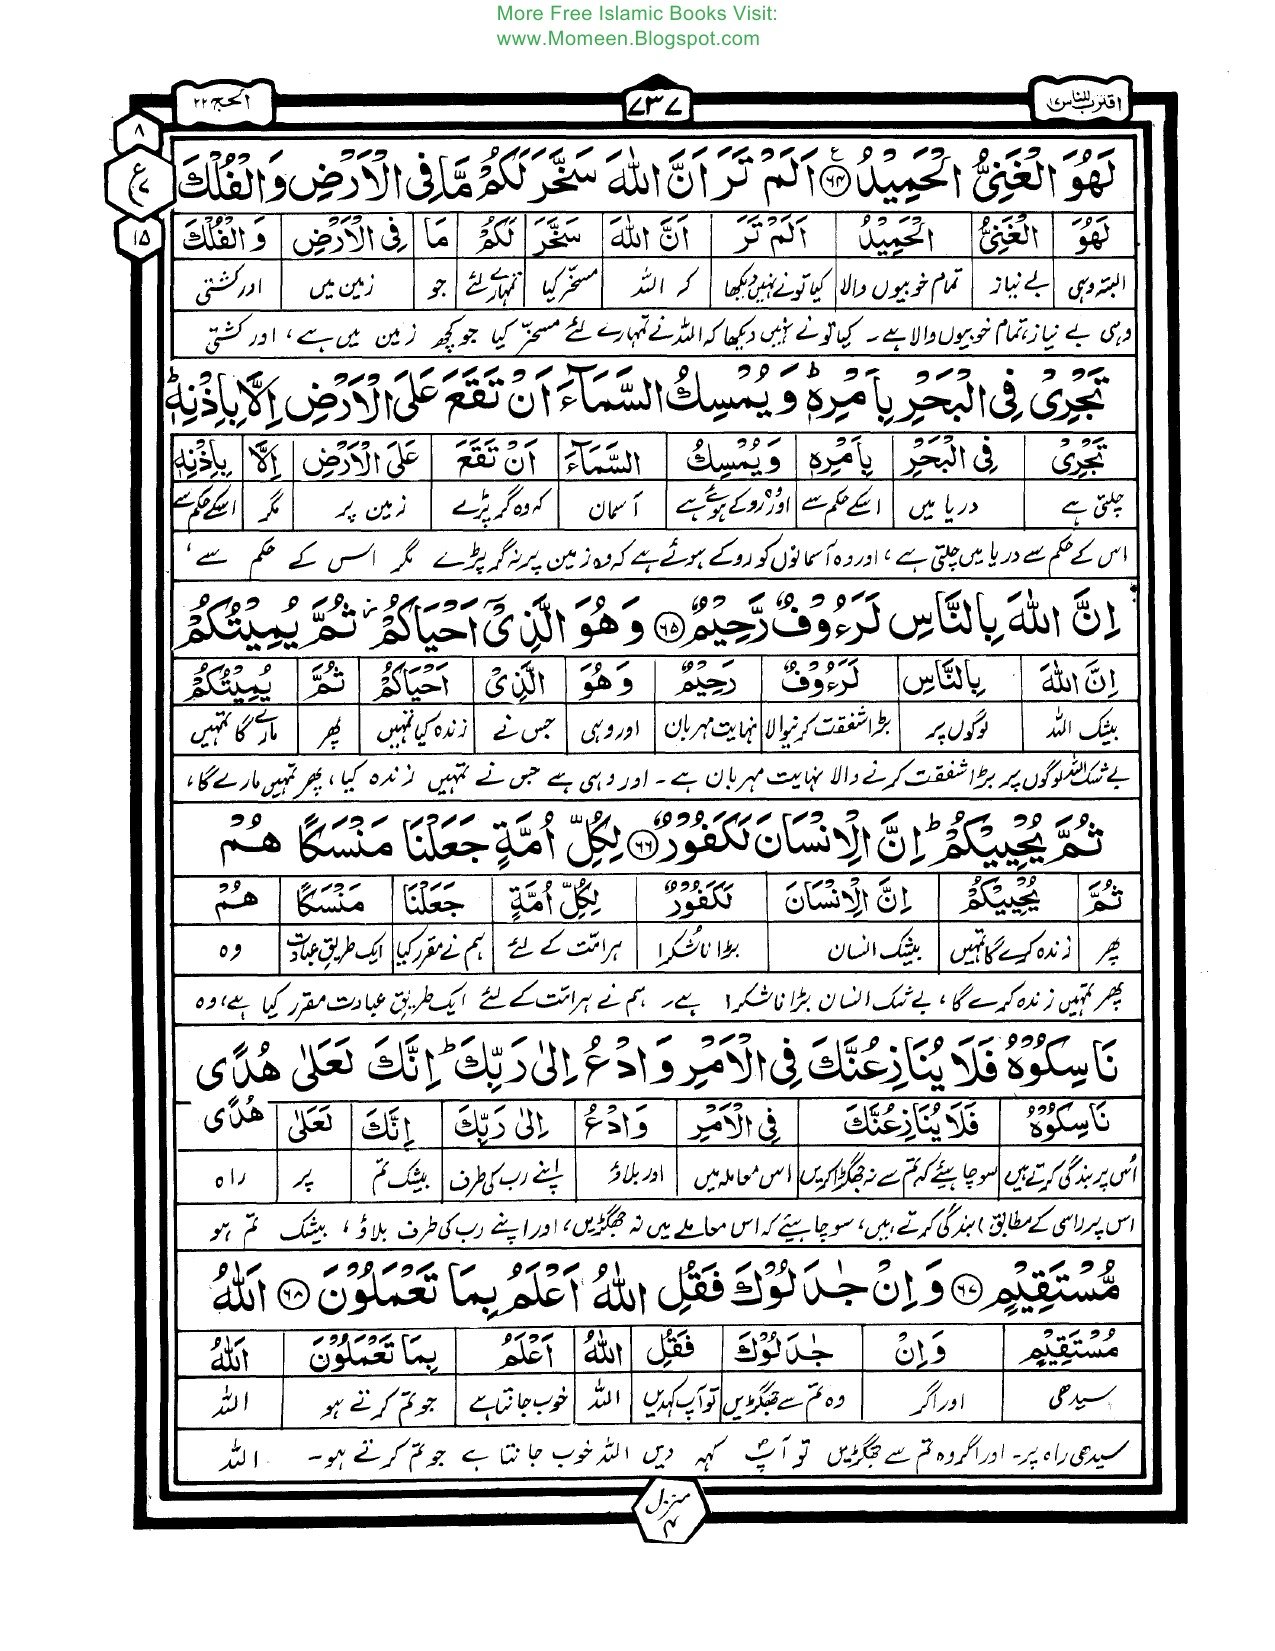 More Free Islamic Books Visit:
www.Momeen.Blogspot.com
اقترب للناس ۱۷
۷۳۷
الحج ۲۲
۸
ع
۷
۱۵
لَهُوَ الْغَنِیُّ الْحَمِیْدُ ۶۴ اَلَمْ تَرَ اَنَّ اللّٰهَ سَخَّرَ لَكُمْ مَّا فِی الْاَرْضِ وَالْفُلْكَ
لَهُوَ الْغَنِیُّ الْحَمِیْدُ اَلَمْ تَرَ اَنَّ اللّٰهَ سَخَّرَ لَكُمْ مَا فِی الْاَرْضِ وَالْفُلْكَ
البتہ وہی بے نیاز تمام خوبیوں والا کیا تو نے نہیں دیکھا کہ اللہ مسخّر کیا تمہارے لئے جو زمین میں اور کشتی
وہی بے نیاز، تمام خوبیوں والا ہے۔ کیا تو نے نہیں دیکھا کہ اللہ نے تمہارے لئے مسخّر کیا جو کچھ زمین میں ہے، اور کشتی
تَجْرِیْ فِی الْبَحْرِ بِاَمْرِهٖ ؕ وَیُمْسِكُ السَّمَآءَ اَنْ تَقَعَ عَلَی الْاَرْضِ اِلَّا بِاِذْنِهٖ ؕ
تَجْرِیْ فِی الْبَحْرِ بِاَمْرِهٖ وَیُمْسِكُ السَّمَآءَ اَنْ تَقَعَ عَلَی الْاَرْضِ اِلَّا بِاِذْنِهٖ
چلتی ہے دریا میں اسکے حکم سے اور وہ روکے ہوئے ہے آسمان کہ وہ گر پڑے زمین پر مگر اسکے حکم سے
اس کے حکم سے دریا میں چلتی ہے، اور وہ آسمانوں کو روکے ہوئے ہے کہ وہ زمین پر نہ گر پڑے مگر اس کے حکم سے،
اِنَّ اللّٰهَ بِالنَّاسِ لَرَءُوْفٌ رَّحِیْمٌ ۶۵ وَهُوَ الَّذِیْۤ اَحْیَاكُمْ ز ثُمَّ یُمِیْتُكُمْ
اِنَّ اللّٰهَ بِالنَّاسِ لَرَءُوْفٌ رَحِیْمٌ وَهُوَ الَّذِیْ اَحْیَاكُمْ ثُمَّ یُمِیْتُكُمْ
بیشک اللہ لوگوں پر بڑا شفقت کرنیوالا نہایت مہربان اور وہی جس نے زندہ کیا تمہیں پھر مارے گا تمہیں
بے شک اللہ لوگوں پر بڑا شفقت کرنے والا نہایت مہربان ہے۔ اور وہی ہے جس نے تمہیں زندہ کیا، پھر تمہیں مارے گا،
ثُمَّ یُحْیِیْكُمْ ؕ اِنَّ الْاِنْسَانَ لَكَفُوْرٌ ۶۶ لِكُلِّ اُمَّةٍ جَعَلْنَا مَنْسَكًا هُمْ
ثُمَّ یُحْیِیْكُمْ اِنَّ الْاِنْسَانَ لَكَفُوْرٌ لِكُلِّ اُمَّةٍ جَعَلْنَا مَنْسَكًا هُمْ
پھر زندہ کرے گا تمہیں بیشک انسان بڑا ناشکرا ہر امّت کے لئے ہم نے مقرر کیا ایک طریق عبادت وہ
پھر تمہیں زندہ کرے گا، بے شک انسان بڑا ناشکرا ہے۔ ہم نے ہر امّت کے لئے ایک طریق عبادت مقرر کیا ہے، وہ
نَاسِكُوْهُ فَلَا یُنَازِعُنَّكَ فِی الْاَمْرِ وَادْعُ اِلٰی رَبِّكَ ؕ اِنَّكَ لَعَلٰی هُدًی
نَاسِكُوْهُ فَلَا یُنَازِعُنَّكَ فِی الْاَمْرِ وَادْعُ اِلٰی رَبِّكَ اِنَّكَ لَعَلٰی هُدًی
اُس پر بندگی کرتے ہیں سو چاہیئے کہ تم سے نہ جھگڑا کریں اس معاملہ میں اور بلاؤ اپنے رب کی طرف بیشک تم پر راہ
اس پر (اسی کے مطابق) بندگی کرتے ہیں، سو چاہیئے کہ اس معاملے میں نہ جھگڑیں، اور اپنے رب کی طرف بلاؤ، بیشک تم ہو
مُّسْتَقِیْمٍ ۶۷ وَاِنْ جٰدَلُوْكَ فَقُلِ اللّٰهُ اَعْلَمُ بِمَا تَعْمَلُوْنَ ۶۸ اَللّٰهُ
مُسْتَقِیْمٍ وَاِنْ جٰدَلُوْكَ فَقُلِ اللّٰهُ اَعْلَمُ بِمَا تَعْمَلُوْنَ اَللّٰهُ
سیدھی اور اگر وہ تم سے جھگڑیں تو آپ کہدیں اللہ خوب جانتا ہے جو تم کرتے ہو اللہ
سیدھی راہ پر۔ اور اگر وہ تم سے جھگڑیں تو آپؐ کہہ دیں اللہ خوب جانتا ہے جو تم کرتے ہو۔ اللہ
منزل
۴